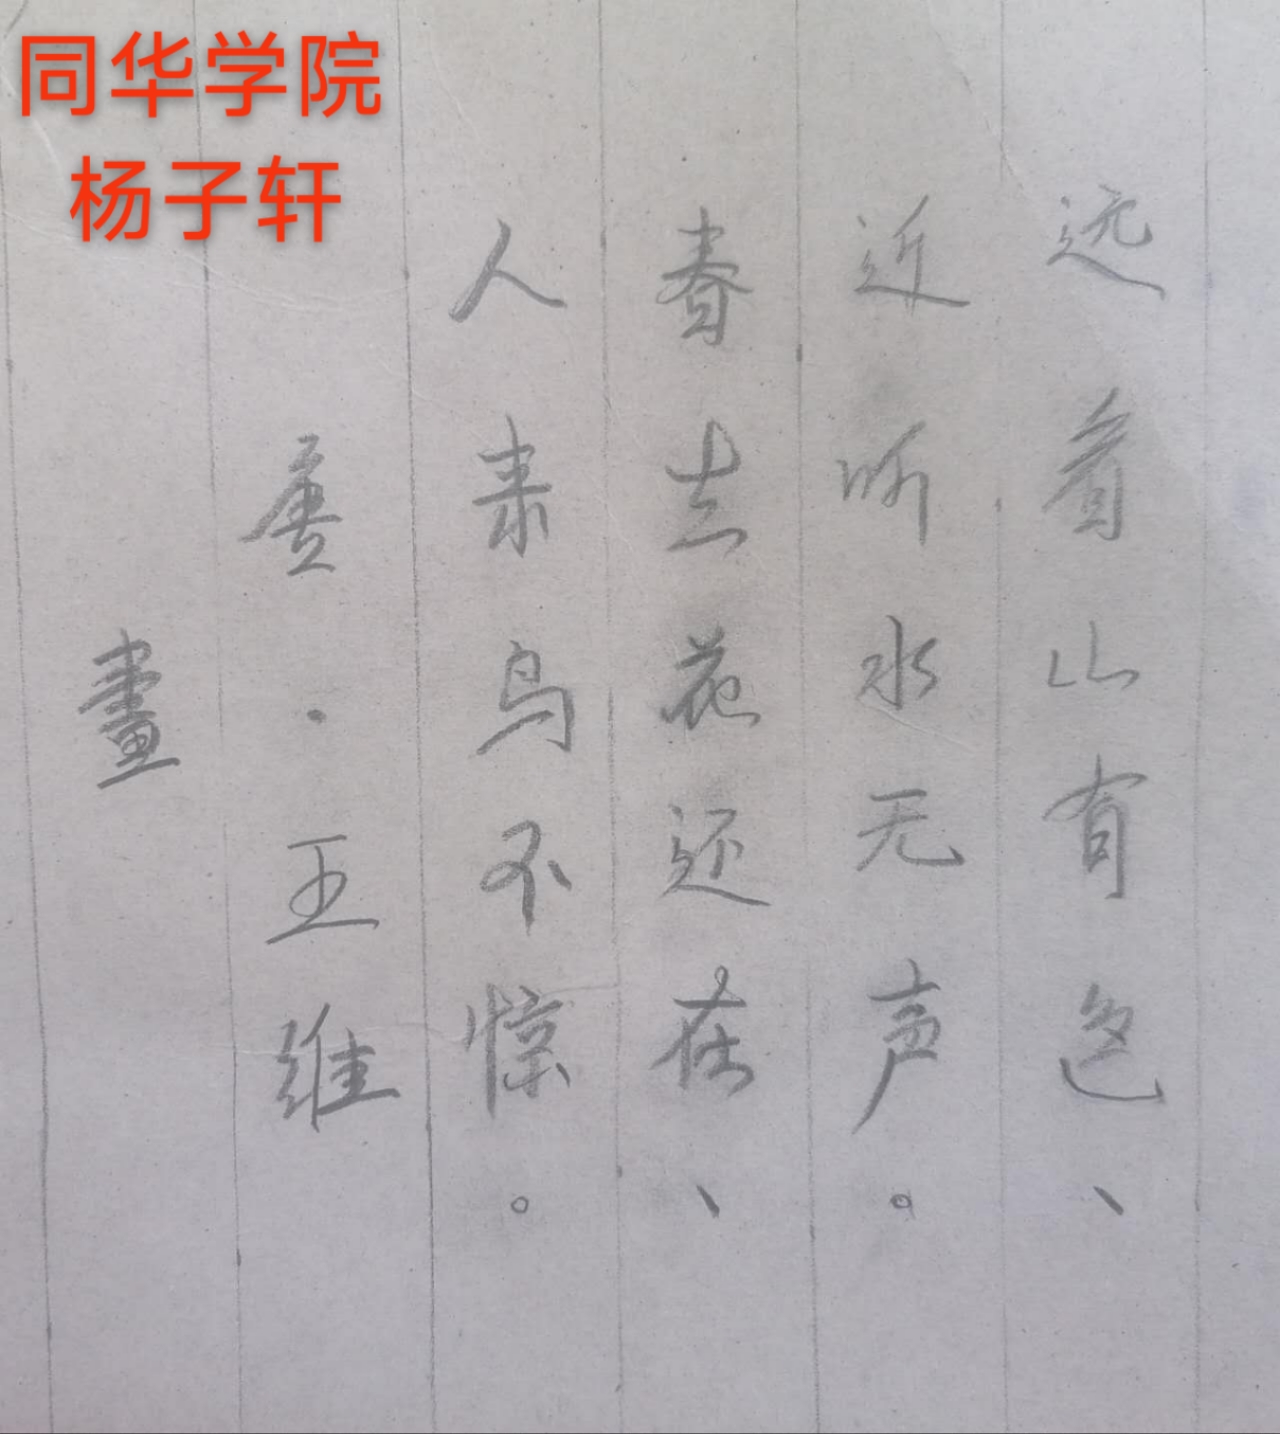 同华学院
杨子轩
远看山有色、
近听水无声。
春去花还在、
人来鸟不惊。
唐·王维
畫